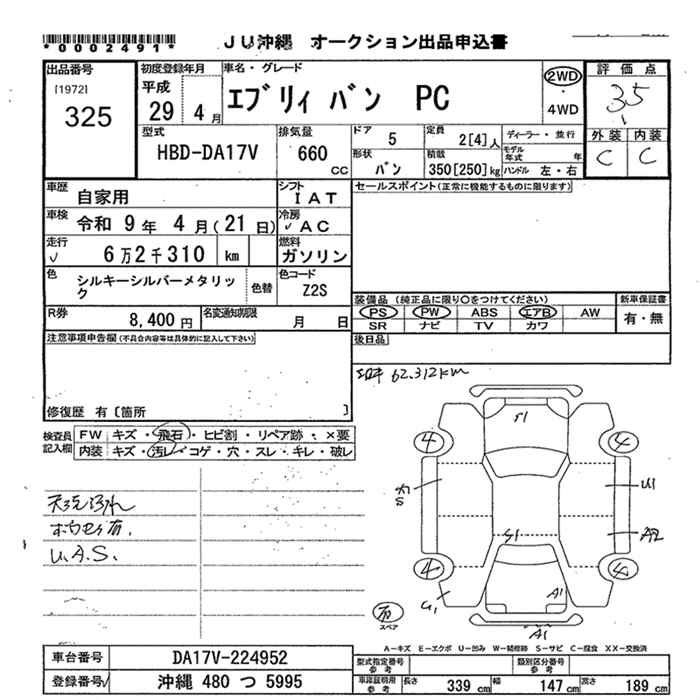 *0002491*
JU沖縄 オークション出品申込書
出品番号
[1972]
325
初度登録年月
平成
29 4 月
車名・グレード
エブリィ バン PC
2WD
・
4WD
評価点
3.5
外装 内装
C C
型式
HBD-DA17V
排気量
660
CC
ドア
5
定員
2[4]人
ディーラー・並行
形状
バン
積載
350[250]kg
モデル年式 年
ハンドル 左・右
車歴
自家用
シフト
IAT
セールスポイント(正常に機能するものに限ります)
車検
令和 9年 4月(21日)
冷房
AC
走行
6万2千310 km
燃料
ガソリン
色
シルキーシルバーメタリック
色替
色コード
Z2S
装備品 (純正品に限り○をつけてください)
新車保証書
PS PW ABS エアB AW
有・無
SR ナビ TV カワ
R券
8,400円
名変通知期限
月 日
後日品
注意事項申告欄(不具合内容等は具体的に記入して下さい)
修復歴 有〔箇所 〕
62.312km
検査員記入欄
FW キズ・飛石・ヒビ割・リペア跡・×要
内装 キズ・汚レ・コゲ・穴・スレ・キレ・破レ
天井汚れ
U.A.S.
S1
4 4
S
U1
S1
A2
4 4
U1
A1
A1
スペア
A-キズ E-エクボ U-凹み W-補修跡 S-サビ C-腐食 XX-交換済
車台番号
DA17V-224952
登録番号
沖縄 480 つ 5995
型式指定番号 参考
類別区分番号 参考
車庫証明用 参考
長さ 339 cm
幅 147 cm
高さ 189 cm